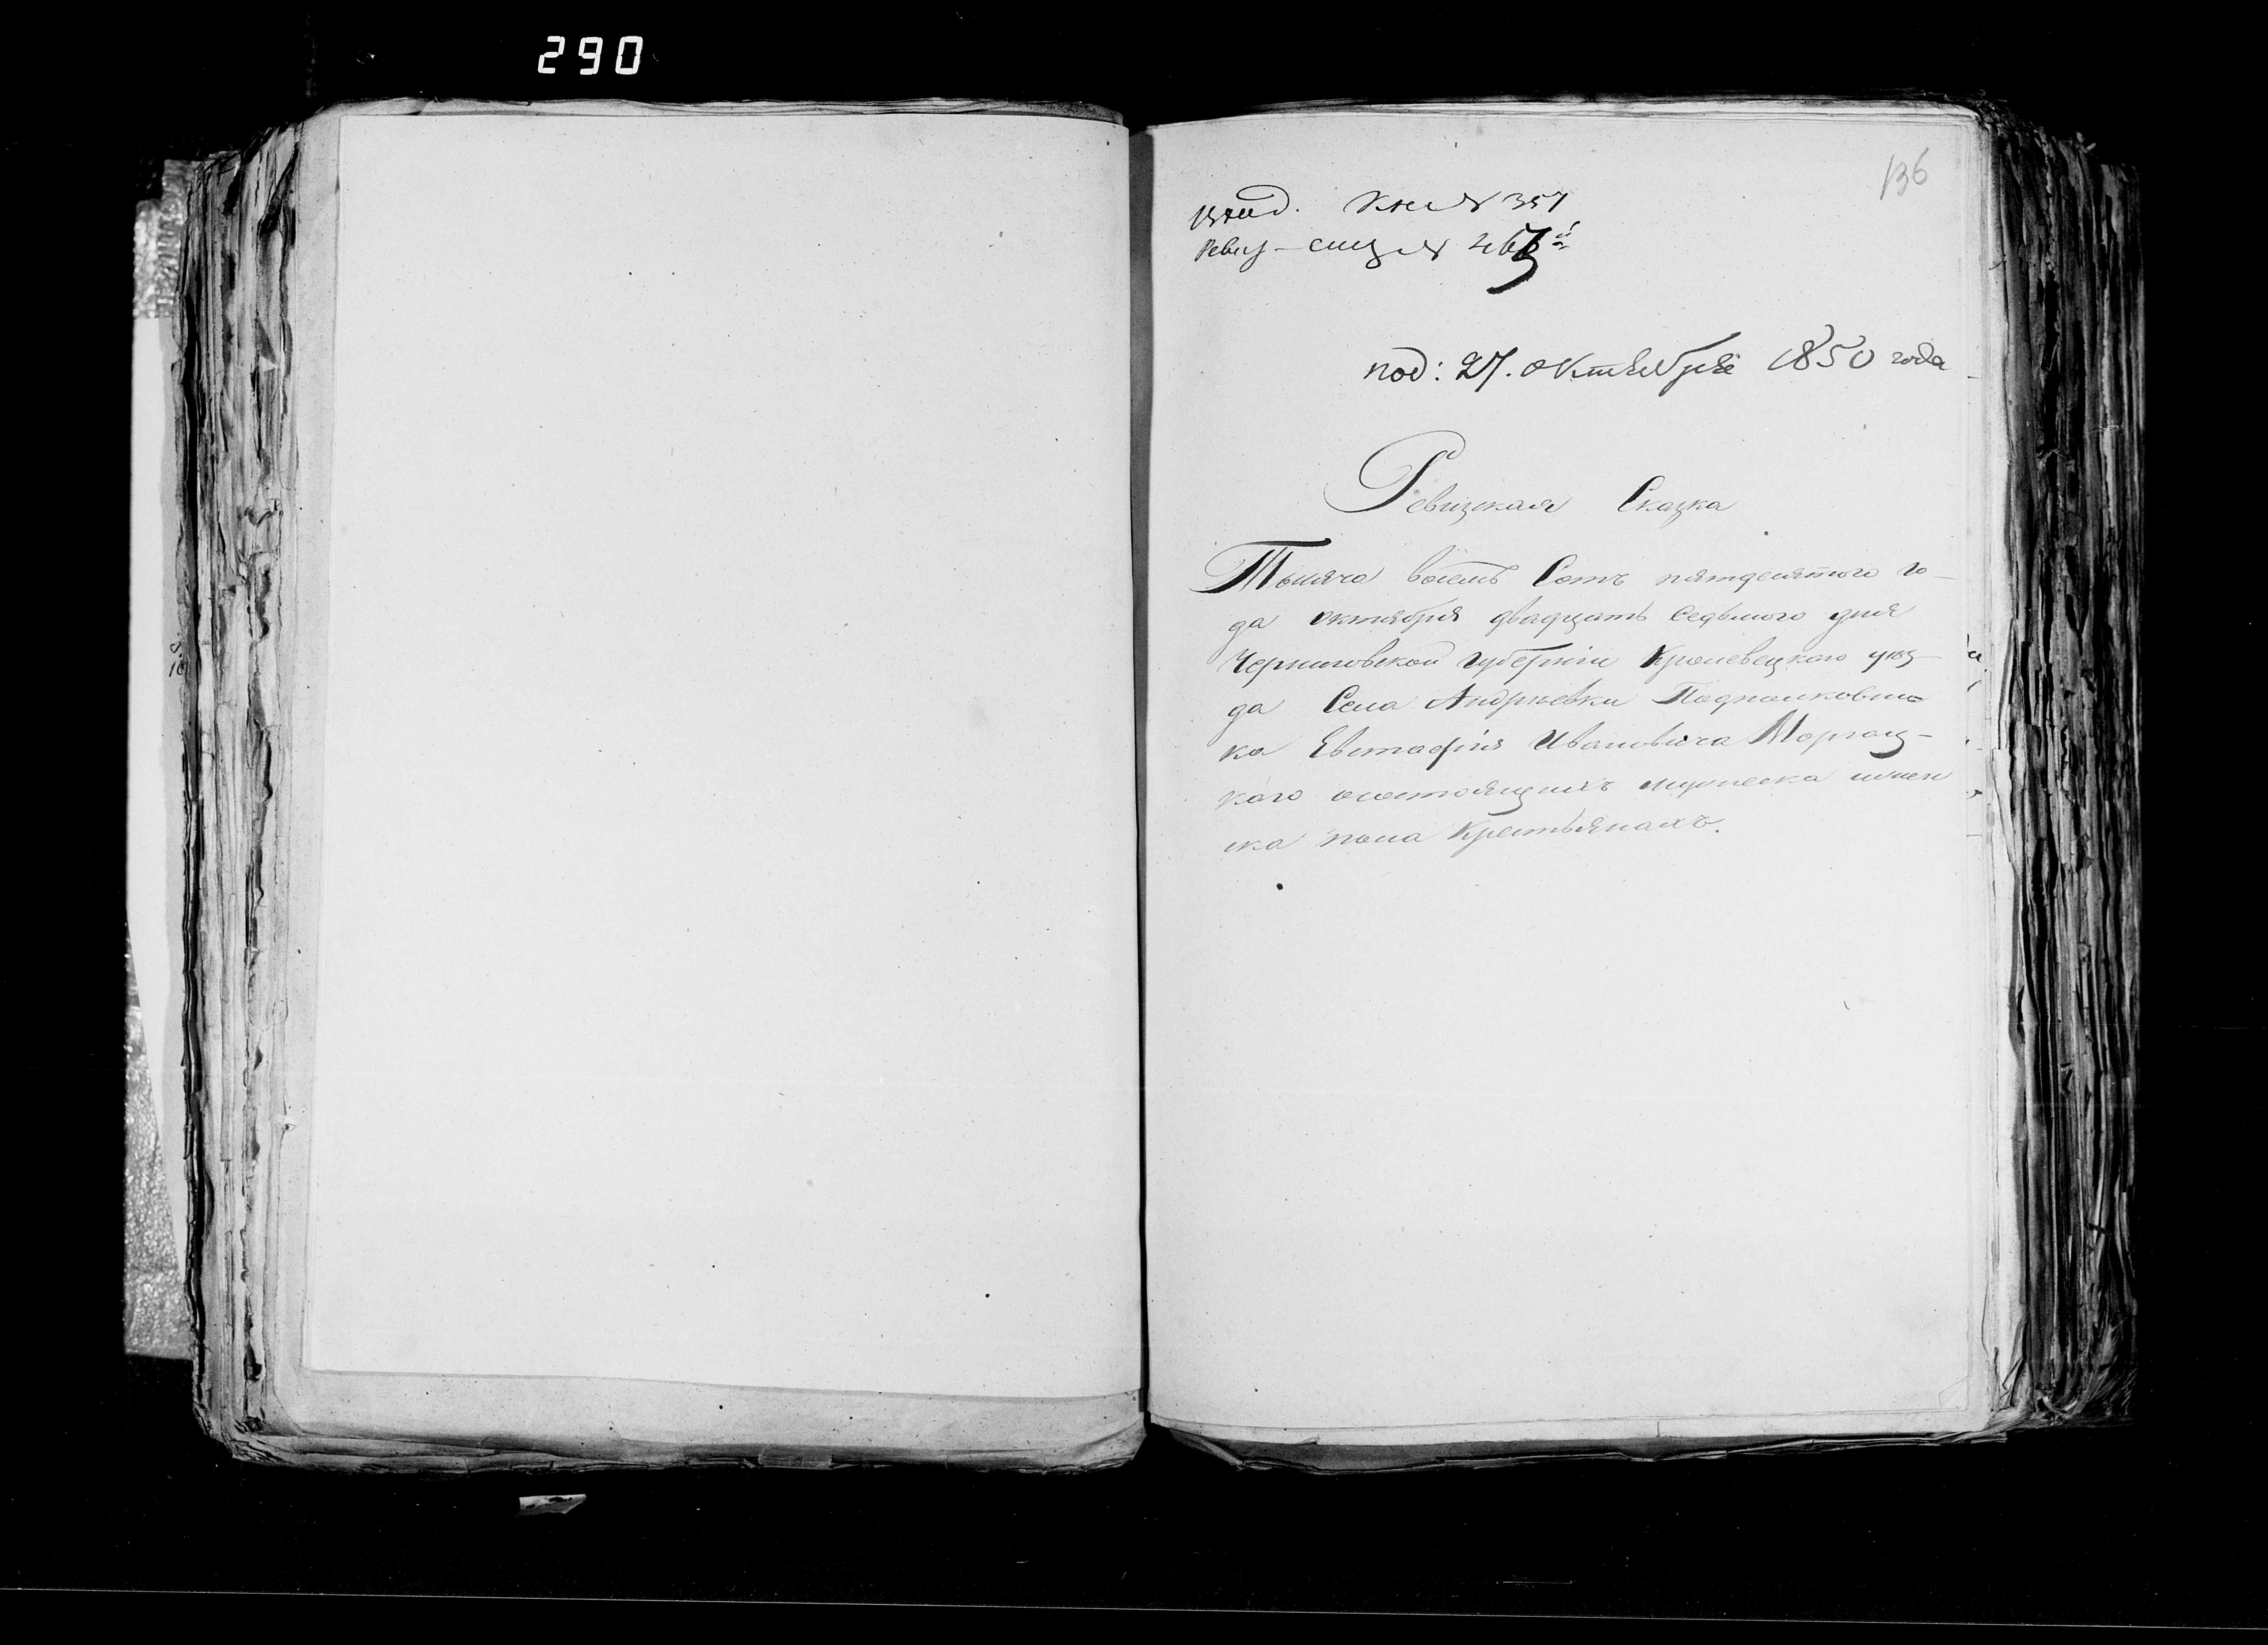 290
136
вход. Кн № 357
Ревиз-сказ № 467й
под: 27. октября 1850 года
Ревизкая Сказка
Тысяча восемь Сотъ пятдесятого го-
да октября двадцать седьмого дня
Черниговской губерніи Кролевецкого уѣз-
да Села Андрѣевки Подполковни-
ка Евстафія Ивановича Моргац-
кого осостоящихъ мужеска ижен
ска пола Крестьянахъ.